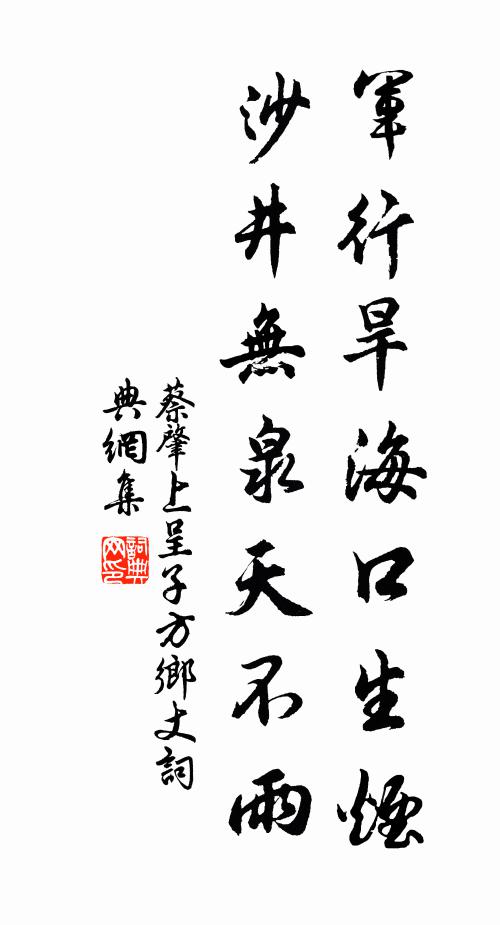 軍行旱海口生煙
沙井無泉天不雨
蔡肇上呈子方鄉丈詞
典網集
詞典
网印